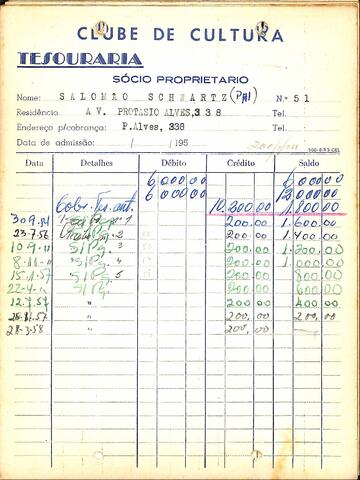 CLUBE DE CULTURA
TESOURARIA
SÓCIO PROPRIETARIO
Nome: SALOMÃO SCHWARTZ (PAI) N.º 51
Residência AV. PROTASIO ALVES, 338 Tel.
Endereço p/cobrança: P.Alves, 338 Tel.
Data de admissão: / /195
Data Detalhes Débito Crédito Saldo
6.000,00 6.000,00
6.000,00 12.000,00
Cobr. ant. 10.200,00 1.800,00
200,00 1.600,00
23.7.56 2 200,00 1.400,00
10.9.11 S/Pg. 3 200,00 1.200,00
8.11.11 S/Pg. 4 200,00 1.000,00
15.1.57 S/Pg. 5 200,00 800,00
S/Pg. 200,00 600,00
12.7.57 " 200,00 400,00
" 200,00 200,00
28.3.58 " 200,00